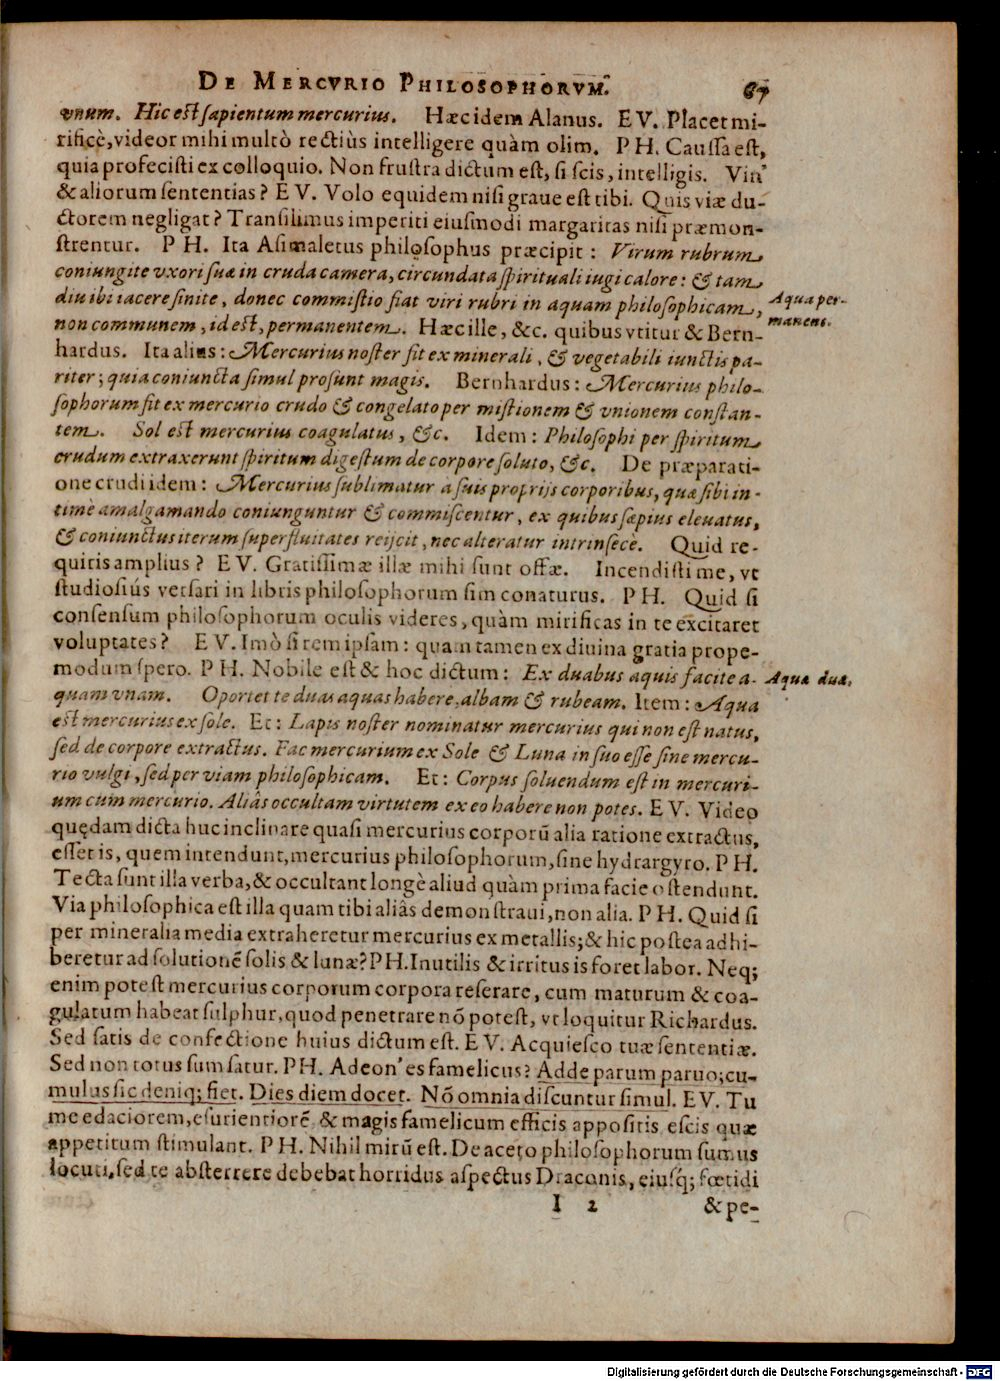 DE MERCVRIO PHILOSOPHORVM. 67
vnum. Hic est sapientum mercurius. Hæc idem Alanus. EV. Placet mi-
rificè, videor mihi multò rectiùs intelligere quàm olim. PH. Caussa est,
quia profecisti ex colloquio. Non frustra dictum est, si scis, intelligis. Vin'
& aliorum sententias? EV. Volo equidem nisi graue est tibi. Quis viæ du-
ctorem negligat? Transilimus imperiti eiusmodi margaritas nisi præmon-
strentur. PH. Ita Asimaletus philosophus præcipit: Virum rubrum
coniungite vxori suæ in cruda camera, circundata spirituali iugi calore: & tam
diu ibi iacere sinite, donec commistio fiat viri rubri in aquam philosophicam,
Aqua per-
manens.
non communem, id est, permanentem. Hæc ille, &c. quibus vtitur & Bern-
hardus. Ita alius: Mercurius noster fit ex minerali, & vegetabili iunctis pa-
riter; quia coniuncta simul prosunt magis. Bernhardus: Mercurius philo-
sophorum fit ex mercurio crudo & congelato per mistionem & vnionem constan-
tem. Sol est mercurius coagulatus, &c. Idem: Philosophi per spiritum
crudum extraxerunt spiritum digestum de corpore soluto, &c. De præparati-
one crudi idem: Mercurius sublimatur a suis proprijs corporibus, quæ sibi in-
timè amalgamando coniunguntur & commiscentur, ex quibus sæpius eleuatus,
& coniunctus iterum superfluitates reijcit, nec alteratur intrinsecè. Quid re-
quiris amplius? EV. Gratissimæ illæ mihi sunt offæ. Incendisti me, vt
studiosiús versari in libris philosophorum sim conaturus. PH. Quid si
consensum philosophorum oculis videres, quàm mirificas in te excitaret
voluptates? EV. Imò si rem ipsam: quam tamen ex diuina gratia prope-
modum spero. PH. Nobile est & hoc dictum: Ex duabus aquis facite a-
Aquæ duæ.
quam vnam. Oportet te duas aquas habere, albam & rubeam. Item: Aqua
est mercurius ex sole. Et: Lapis noster nominatur mercurius qui non est natus,
sed de corpore extractus. Fac mercurium ex Sole & Luna in suo esse sine mercu-
rio vulgi, sed per viam philosophicam. Et: Corpus soluendum est in mercuri-
um cum mercurio. Aliàs occultam virtutem ex eo habere non potes. EV. Video
quędam dicta huc inclinare quasi mercurius corporũ alia ratione extractus,
esset is, quem intendunt, mercurius philosophorum, sine hydrargyro. PH.
Tecta sunt illa verba, & occultant longè aliud quàm prima facie ostendunt.
Via philosophica est illa quam tibi aliâs demonstraui, non alia. PH. Quid si
per mineralia media extraheretur mercurius ex metallis; & hic postea adhi-
beretur ad solutionẽ solis & lunæ? PH. Inutilis & irritus is foret labor. Neq;
enim potest mercurius corporum corpora reserare, cum maturum & coa-
gulatum habeat sulphur, quod penetrare nõ potest, vt loquitur Richardus.
Sed satis de confectione huius dictum est. EV. Acquiesco tuæ sententiæ.
Sed non totus sum satur. PH. Adeon' es famelicus? Adde parum paruo; cu-
mulus sic deniq; fiet. Dies diem docet. Nõ omnia discuntur simul. EV. Tu
me edaciorem, esurientiorẽ & magis famelicum efficis appositis escis quæ
appetitum stimulant. PH. Nihil mirũ est. De aceto philosophorum sumus
locuti, sed te absterrere debebat horridus aspectus Draconis, eiusq́; fœtidi
I 2 & pe-
Digitalisierung gefördert durch die Deutsche Forschungsgemeinschaft - DFG